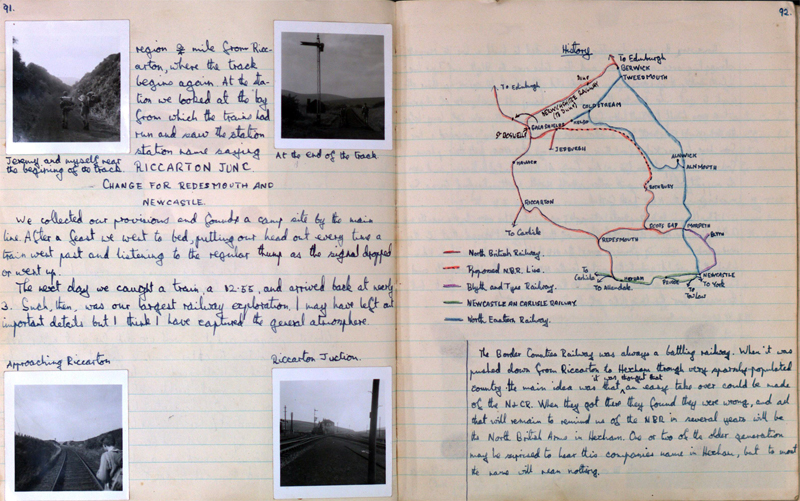 91.
region ¾ mile from Ricc-
arton, where the track
begins again. At the sta-
tion we looked at the bay
from which the trains had
run and saw the station
station name saying
RICCARTON JUNC.
Jeremy and myself near
the beginning of the track.
At the end of the track
CHANGE FOR REDESMOUTH AND
NEWCASTLE.
We collected our provisions and found a camp site by the main
line. After a feast we went to bed, putting our head out every time a
train went past and listening to the regular thump as the signal dropped
or went up.
The next day we caught a train, a 12.55, and arrived back at nearly
3. Such, then, was our largest railway exploration. I may have left out
important details but I think I have captured the general atmosphere.
Approaching Riccarton
Riccarton Juction.
92.
History
To Edinburgh
BERWICK
TWEEDMOUTH
To Edinburgh
COLDSTREAM
KELSO
GALASHIELS
ST BOSWELLS
JEDBURGH
HAWICK
ALNWICK
ALNMOUTH
ROTHBURY
RICCARTON
To Carlisle
SCOTS GAP
MORPETH
REDESMOUTH
BLYTH
To
Carlisle
HEXHAM
To Allendale
NEWCASTLE
To York
North British Railway.
Proposed N.B.R. Line.
Blyth and Tyne Railway.
NEWCASTLE AN CARLISLE RAILWAY
North Eastern Railway.
The Border Counties Railway was always a battling railway. When it was
pushed down from Riccarton to Hexham through very sparsly-populated
country the main idea was that it was thought that an easy take over could be made
of the N&CR. When they got there they found they were wrong, and all
that will remain to remind us of the NBR in several years will be
the North British Arms in Hexham. One or two of the older generation
may be suprised to hear this companies name in Hexham, but to most
the name will mean nothing.